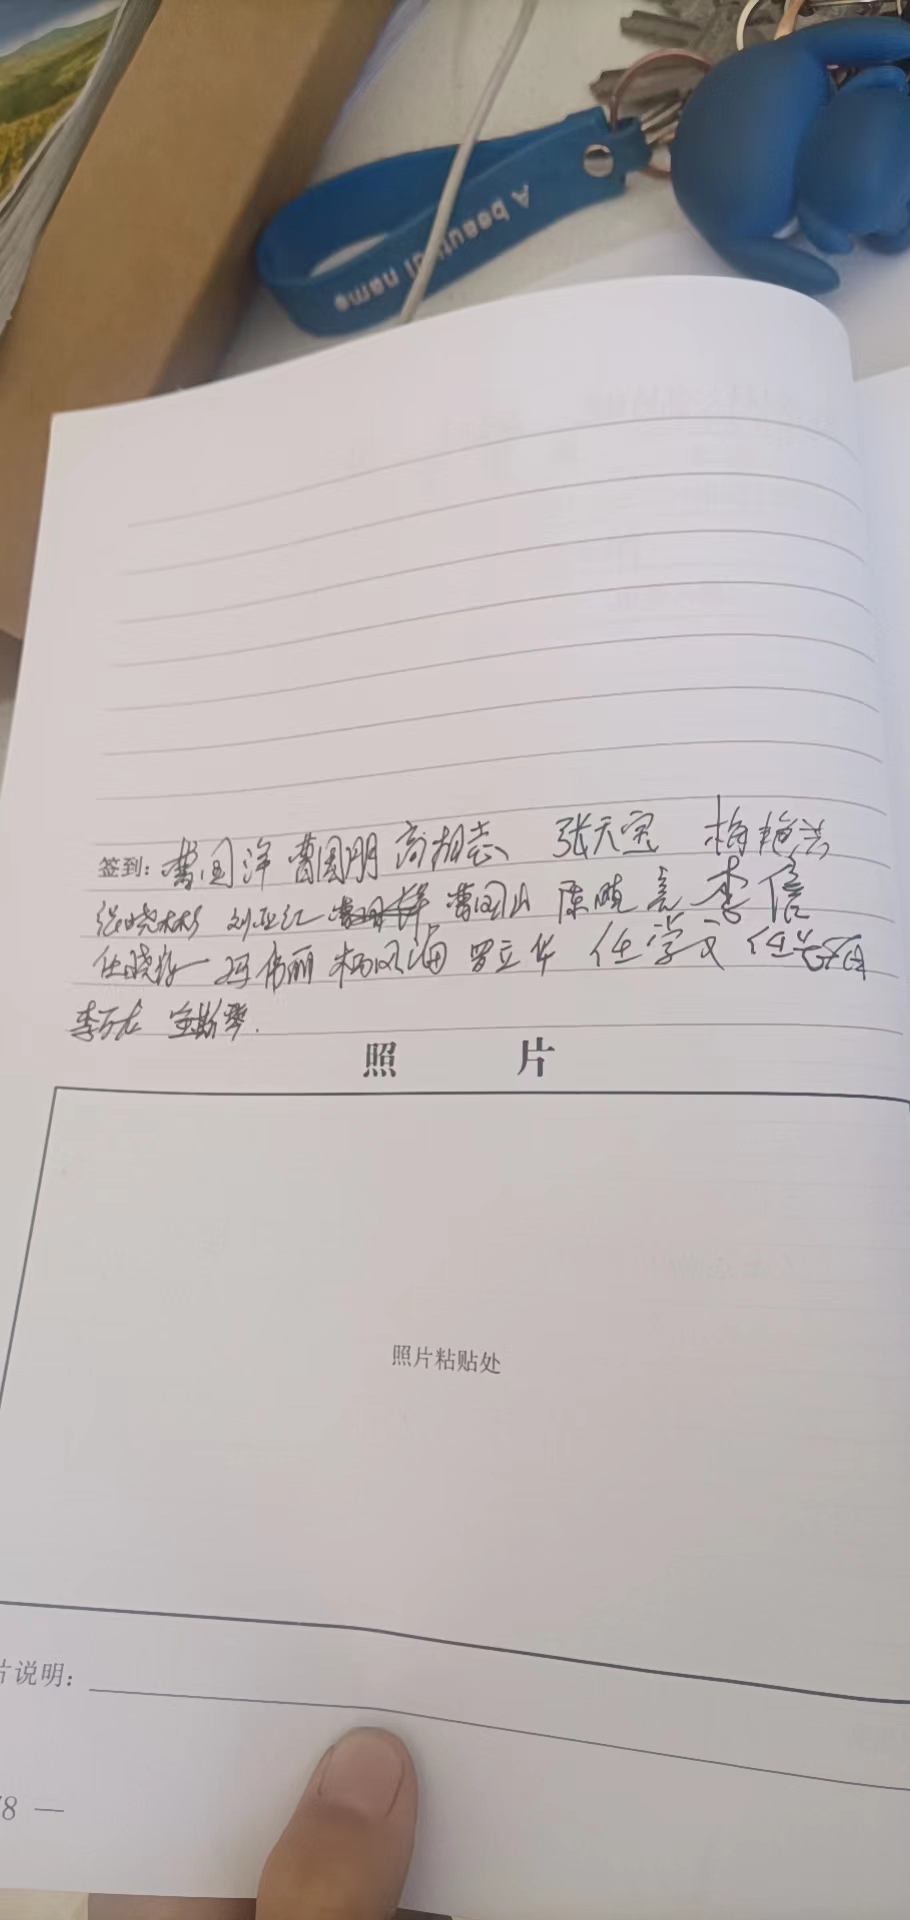 A beautiful name
签到：曹国洋 曹国朋 高相志 张天宝 梅艳芳
张晓彬 刘亚江 曹国山 陈晓亮 李信
任晓 冯伟丽 杨凤海 罗立华 任学文 任
李万龙 宝斯琴.
照 片
照片粘贴处
片说明：
78 —